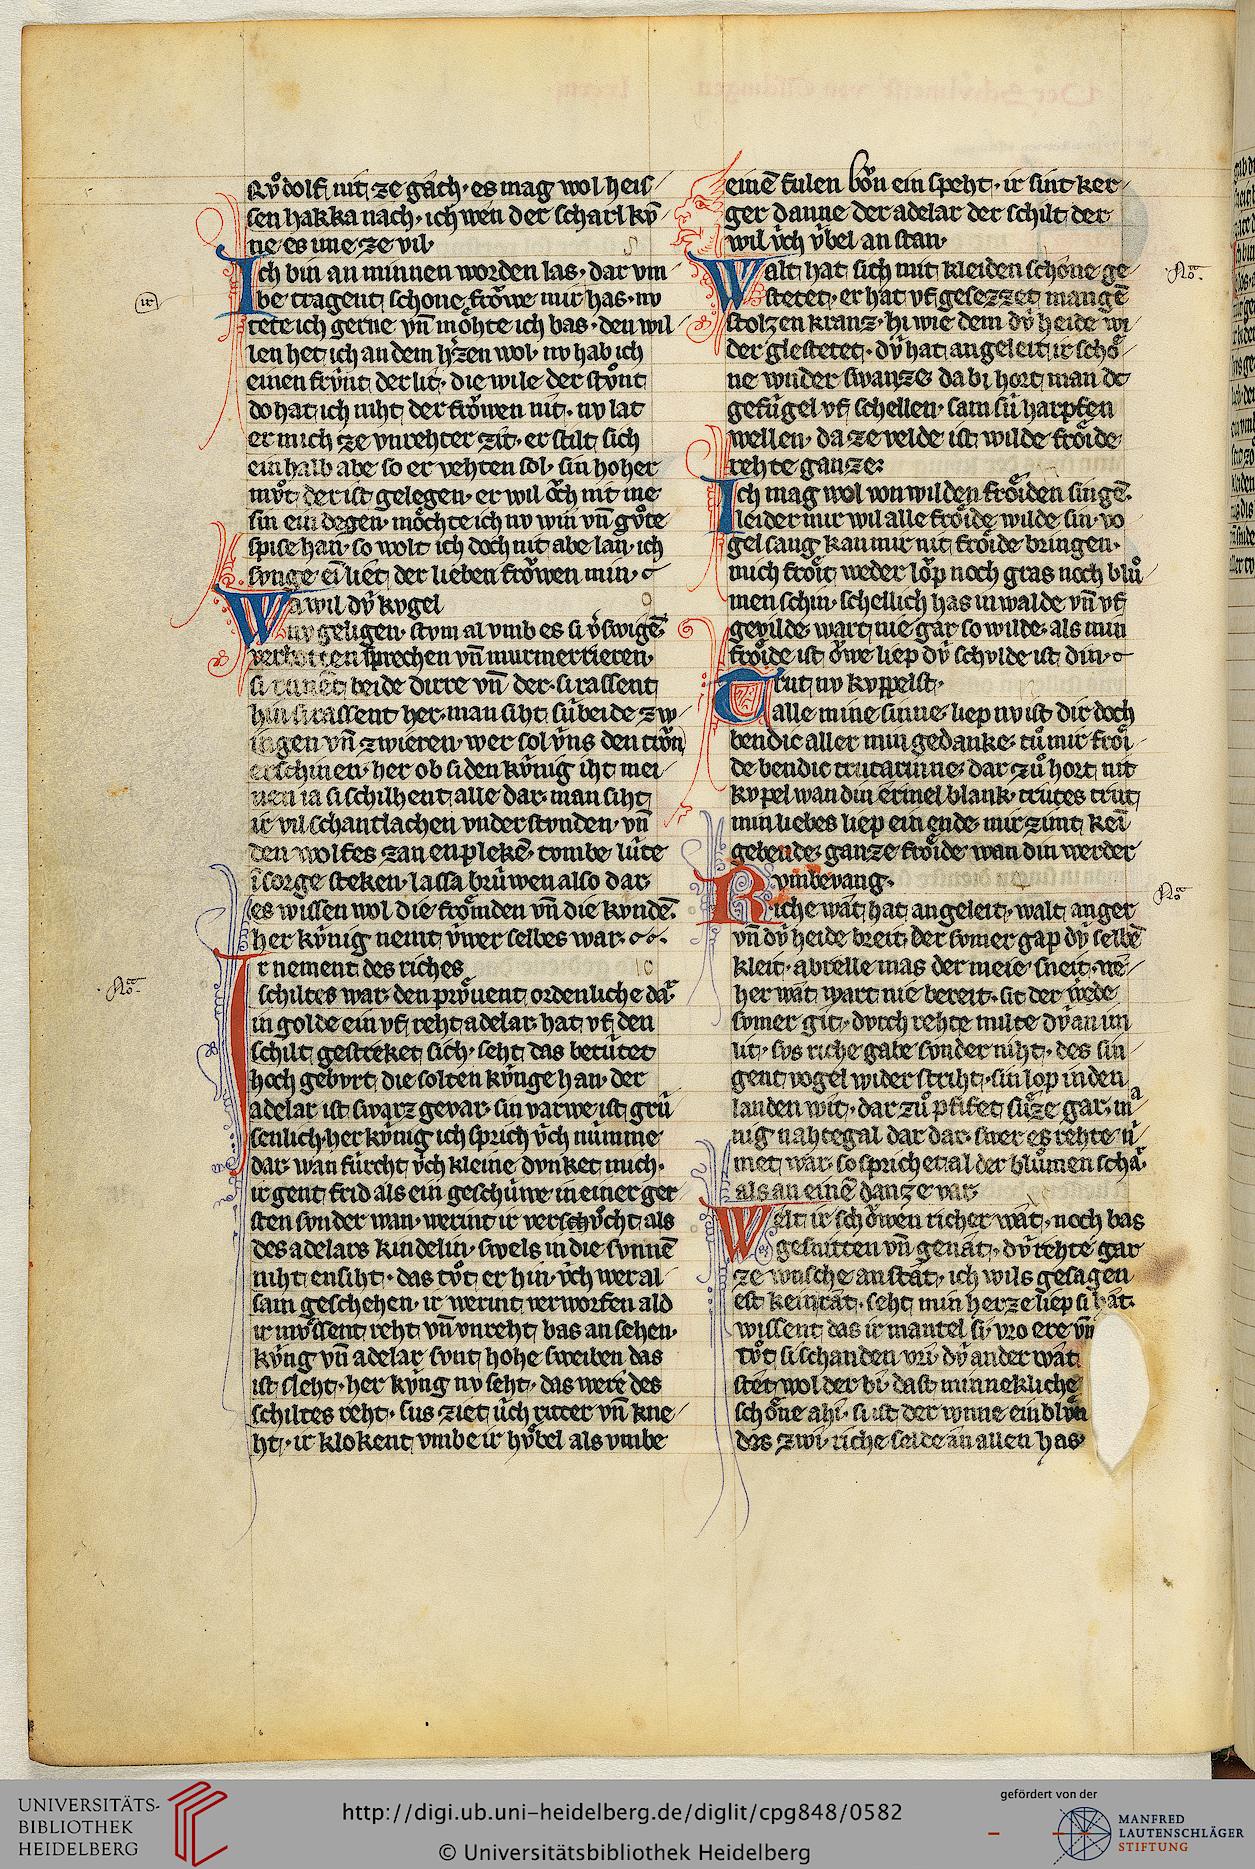 Rvͦdolf nit ze gach · es mag wol heis-
sen hakka nach · ich wen der scharl kv̄
ne es ime ze vil·
Ich bin an minnen worden las · dar vm
be tragent schone frowe mir has · nv
tete ich gerne vn̄ mohte ich bas · den wil
len het ich an dem h'zen wol · nv hab ich
einen frv́nt der lit · die wile der stvͦnt
do hat ich niht der froͮwen nit · nv lat
er mich ze vnrehter zit · er stilt sich
ein halb abe so er vehten sol · sin hoher
mvͦt der ist gelegen · er wil oͮch nit me
sin ein degen · moͤchte ich nv win vn̄ gvͦte
spise han · so wolt ich doch nit abe lan · ich
svnge ein liet der lieben froͮwen min ·
Wa wil dv́ kvgel
nv geligen · stvm al vmb es si v'swigē
verbotten sprechen vn̄ murmerieren ·
si runēt beide dirre vn̄ der · si rassent
hin si rassent her · man siht sú beide zw-
ingen vn̄ zwieren · wer sol v́ns den trōn
erschinen · her ob si den kv́nig iht mei-
nen ia si schilhent alle dar · man siht
ir vil schantlachen vnder stvnden · vn̄
den wolfes zan enplekē · tombe lúte
ī sorge steken · lassa brúwen also dar
es wissen wol die froͤmden vn̄ die kvndē ·
her kv́nig nemt v́wer selbes war ·
Ir nement des riches
schiltes war · den provent ordenliche da
in golde ein vf reht adelar · hat vf den
schilt gestreket sich · seht das betútet
hoch gebvrt die solten kv́nge han · der
adelar ist swarz gevar · sin varwe ist grú
senlich · her kv́nig ich sprich v́ch númme
dar · wan fúrcht v́ch kleine dvnket mich ·
ir gent frid als ein geschúwe in einer ger
sten svnder wan · werint ir verschoͤcht als
des adelars kindelin · swels in die svnnē
niht ensiht · das toͤt er hin · v́ch wer al
sam geschehen · ir werint verworfen ald
ir mvͤssent reht vn̄ vnreht bas an sehen ·
kv́ng vn̄ adelar svnt hohe sweiben das
ist sleht · her kv́ng nv seht · das were des
schiltes reht · sus ziet úch ritter vn̄ kne-
ht · ir klokent vmbe ir hv́bel als vmbe
einē fulen bon ein speht · ir sint ker-
ger danne der adelar der schilt der
wil v́ch v́bel an stan ·
Walt hat sich mit kleiden schone ge-
stetet · er hat vf gesezzet mangē
stolzen kranz · hi wie dem dv́ heide wi
der glestetet · dv́ hat angeleit ir schoͤ-
ne wnder swanze da bi hort man dc
gefúgel vf schellen · sam sú harpfen
wellen · da ze velde ist wilde froͤide
rehte ganze :
Ich mag wol von wilden froͤiden singē ·
leider mir wil alle froͤide wilde sin · vo
gel sang kan mir nit froͤide bringen ·
mich froͤit weder lop noch gras noch bluͦ
men schin · schellich has in walde vn̄ vf
gevilde · wart nie gar so wilde · als min
froͤide ist oͮwe liep dv́ schvlde ist din ·
Trut nv kvppelst ·
alle mine sinne · liep nv ist dir doch
bendic aller min gedanke · tuͦ mir froͤi-
de bendic trutarinne · dar zuͦ hort nit
kvpel wan din ermel blank · trutes trut
min liebes liep ein ende · mir zimt kei
gebende · ganze froͤide wan din werder
vmbevang ·
Riche wat hat angeleit · walt anger
vn̄ dv́ heide breit · der svmer gap dv́ selbē
kleit · abrelle mas der meie · sneit · ne-
her wat wart nie bereit · sit der werde
svmer git · dvrch rehte milte dv́ an un
lit · svs riche gabe svnder niht · des sin-
gent vogel wider striht · sin lop in den
landen wit · dar zuͦ pfifet suͤze gar · ma
nig nahtegal dar dar · swer es rehte n-
met war · so sprichet al der bluͦmen scha
als an einē danze var
Welt ir schoͮwen richer wat · noch bas
gesnitten vn̄ genat · dv́ rehte gar
ze wnsche an stat · ich wils gesagen
est kein rat · seht min herze liep si hat ·
wissent das ir mantel si · vro ere vn̄
toͤt si schanden vri · dv́ ander wat
stet wol der bi · dast minnekliche
schoͤne ahi · si ist der wnne ein blvͤn
des zwi · riche selde an allen has
No
ir
No
No
UNIVERSITÄTS-
BIBLIOTHEK
HEIDELBERG
http://digi.ub.uni-heidelberg.de/diglit/cpg848/0582
© Universitätsbibliothek Heidelberg
gefördert von der
MANFRED
LAUTENSCHLÄGER
STIFTUNG